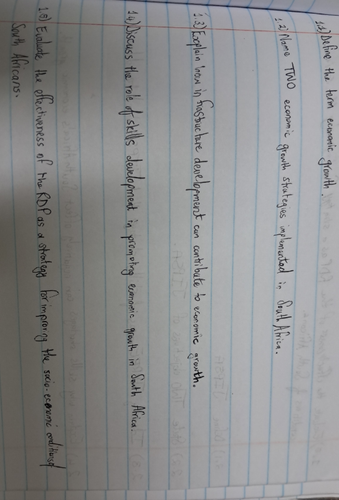 1.1) Define the term economic growth.
1.2) Name TWO economic growth strategies implemented in South Africa.
1.3) Explain how infrastructure development can contribute to economic growth.
1.4) Discuss the role of skills development in promoting economic growth in South Africa.
1.5) Evaluate the effectiveness of the RDP as a strategy for improving the socio-economic conditions of
South Africans.